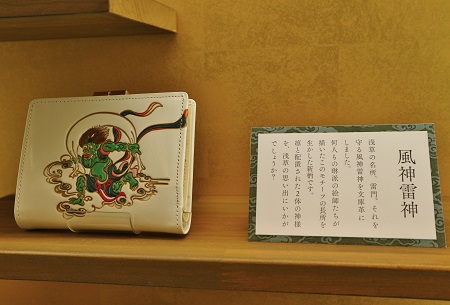 風神雷神
浅草の名所、雷門。それを
守る風神雷神を文庫革に
しました。
何人もの琳派の絵師たちが
描いたこのモチーフの長所を
生かした新柄です。
凛と配置された2体の神様
を、浅草の思い出にいかが
でしょうか?